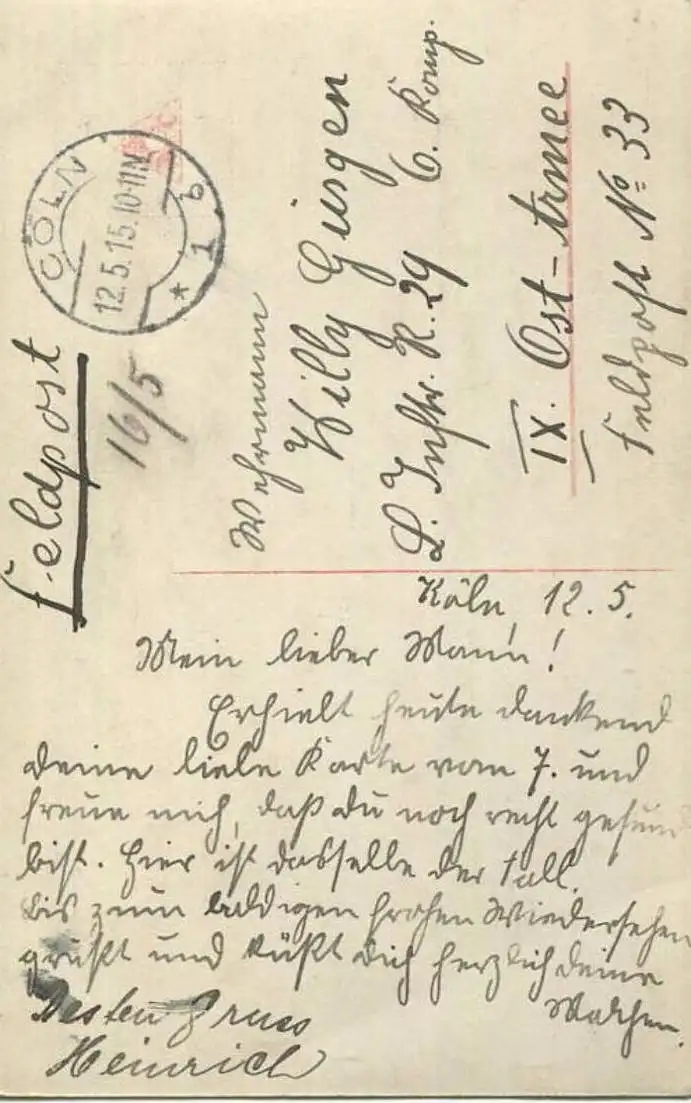 Feldpost
CÖLN
12.5.15.10-11N
* 1 b
16/5
Wehrmann
Willy Güsgen
L. Inftr. R. 29 6. Komp.
IX. Ost-Armee
Feldpost No 33
Köln, 12. 5.
Mein lieber Mann!
Erhielt heute dankend
deine liebe Karte vom 7. und
freue mich, daß du noch recht gesund
bist. Hier ist dasselbe der Fall.
Bis zum baldigen frohen Wiedersehen
grüßt und küßt dich herzlich deine
Besten Gruss
Heinrich